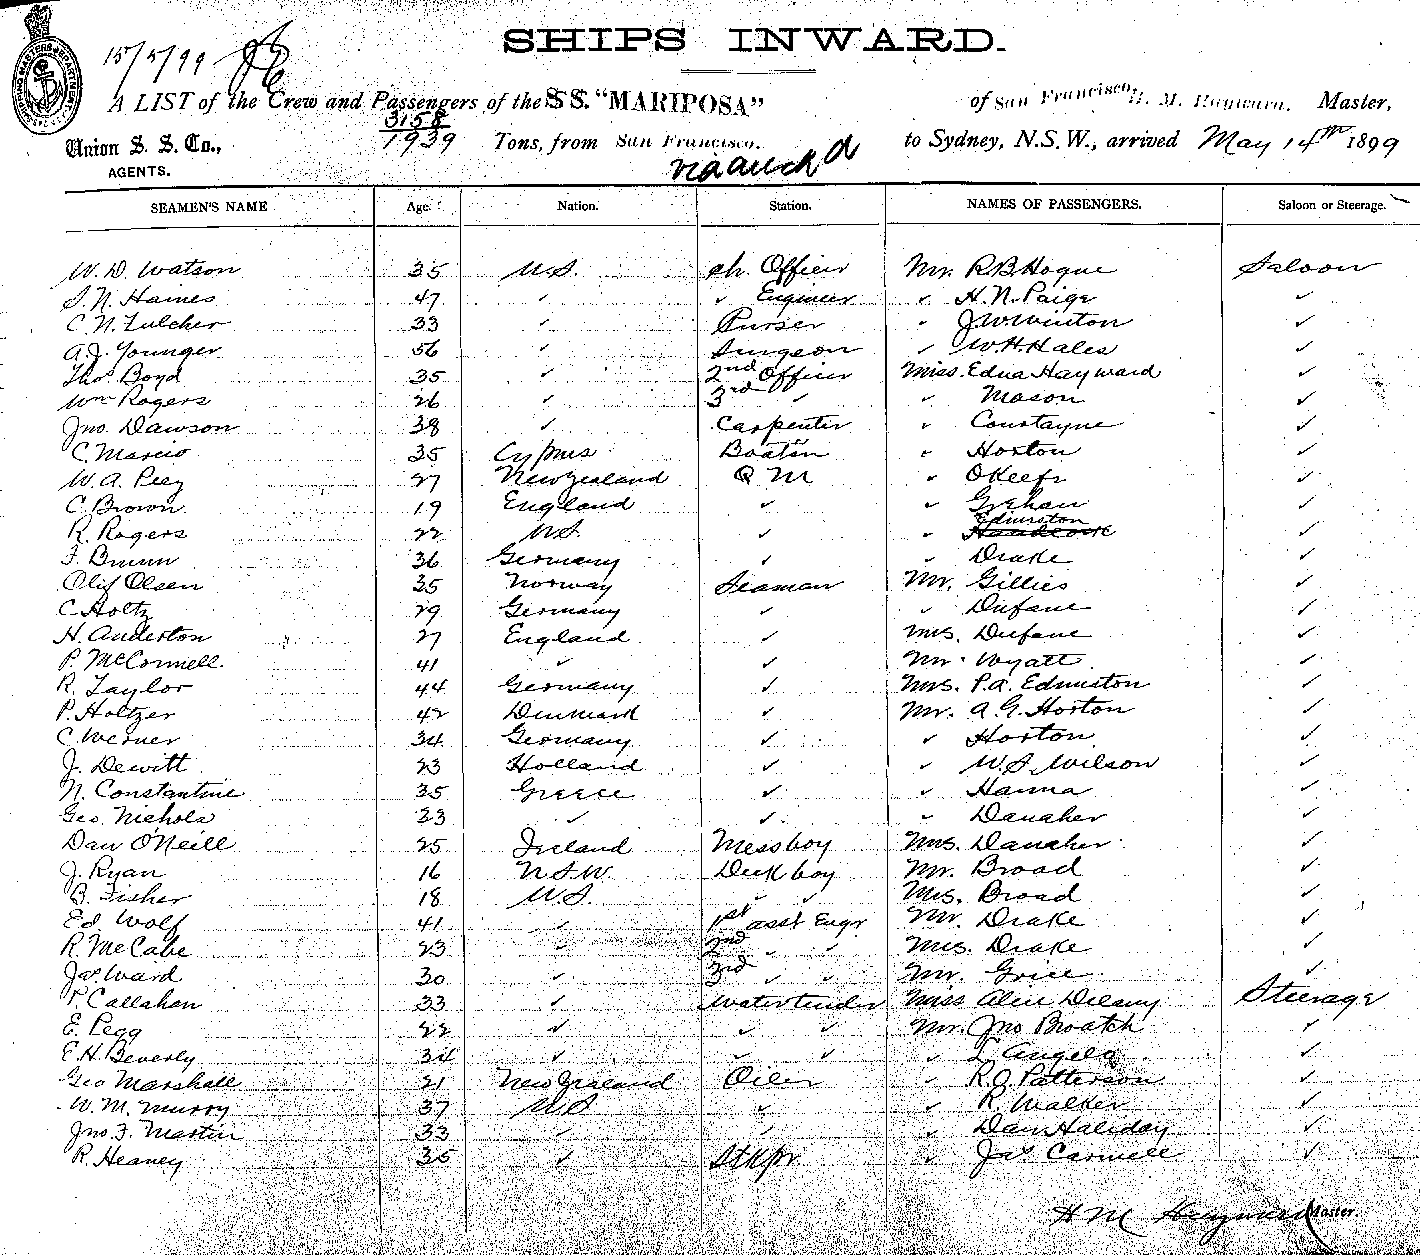 SHIPS INWARD.
15/5/99
A LIST of the Crew and Passengers of the SS. "MARIPOSA" of San Francisco, H. M. Hayward, Master,
3158
1939 Tons, from San Francisco. to Sydney, N.S.W., arrived May 14th 1899
Union S. S. Co.,
via auckd
AGENTS.
SEAMEN'S NAME Age. Nation. Station. NAMES OF PASSENGERS. Saloon or Steerage.
W. D. Watson 35 U.S. ch. Officer Mr. R B Hogue Saloon
S. N. Haines 47 " " Engineer " H. N. Paige "
C. N. Fulcher 33 " Purser " J. W. Winton "
A. J. Younger 56 " Surgeon " W. H. Hales "
Thos Boyd 35 " 2nd Officer Miss. Edna Hayward "
Wm Rogers 26 " 3rd " " Mason "
Jno. Dawson 38 " Carpenter " Constayne "
C. Marcio 35 Cyprus Boatsn " Horton "
W. A. Peez 27 New Zealand Q M " OKeefe "
C. Brown 19 England " " Grehan "
Edmiston
R. Rogers 22 U.S. " " Handcock "
F. Brunn 36 Germany " " Drake "
Olif Olsen 35 Norway Seaman Mr. Gillies "
C. Holtz 29 Germany " " Dufane "
H. Anderton 27 England " Mrs. Dufane "
P. McCormell 41 " " Mr. Wyatt "
R. Taylor 44 Germany " Mrs. P. A. Edmiston "
P. Holtzer 42 Denmark " Mr. A. G. Horton "
C. Werner 34 Germany " " Horton "
J. Dewitt 23 Holland " " W. S. Wilson "
N. Constantine 35 Greece " " Hanna "
Geo. Nichols 23 " " " Danaher "
Dan O'Neill 25 Ireland Messboy Mrs. Danaher "
J. Ryan 16 N S W. Deck boy Mr. Broad "
B. Fisher 18 U.S. " " Mrs. Broad "
Ed Wolf 41 " 1st asst Engr Mr. Drake "
R. McCabe 23 " 2nd " " Mrs. Drake "
Jas Ward 30 " 3rd " " Mr. Grice "
P. Callahan 33 " Watertender Miss Alice Delany Steerage
E. Pegg 22 " " " Mr. Jno Broatch "
E. H. Beverly 34 " " " " T. Angelo "
Geo Marshall 21 New Zealand Oiler " R. A. Patterson "
W. M. Murry 37 U.S. " " R. Walker "
Jno. F. Martin 33 " " " Dan Haliday "
R. Heaney 35 " Stkpr. " Jas. Carmell "
H M Hayward Master.